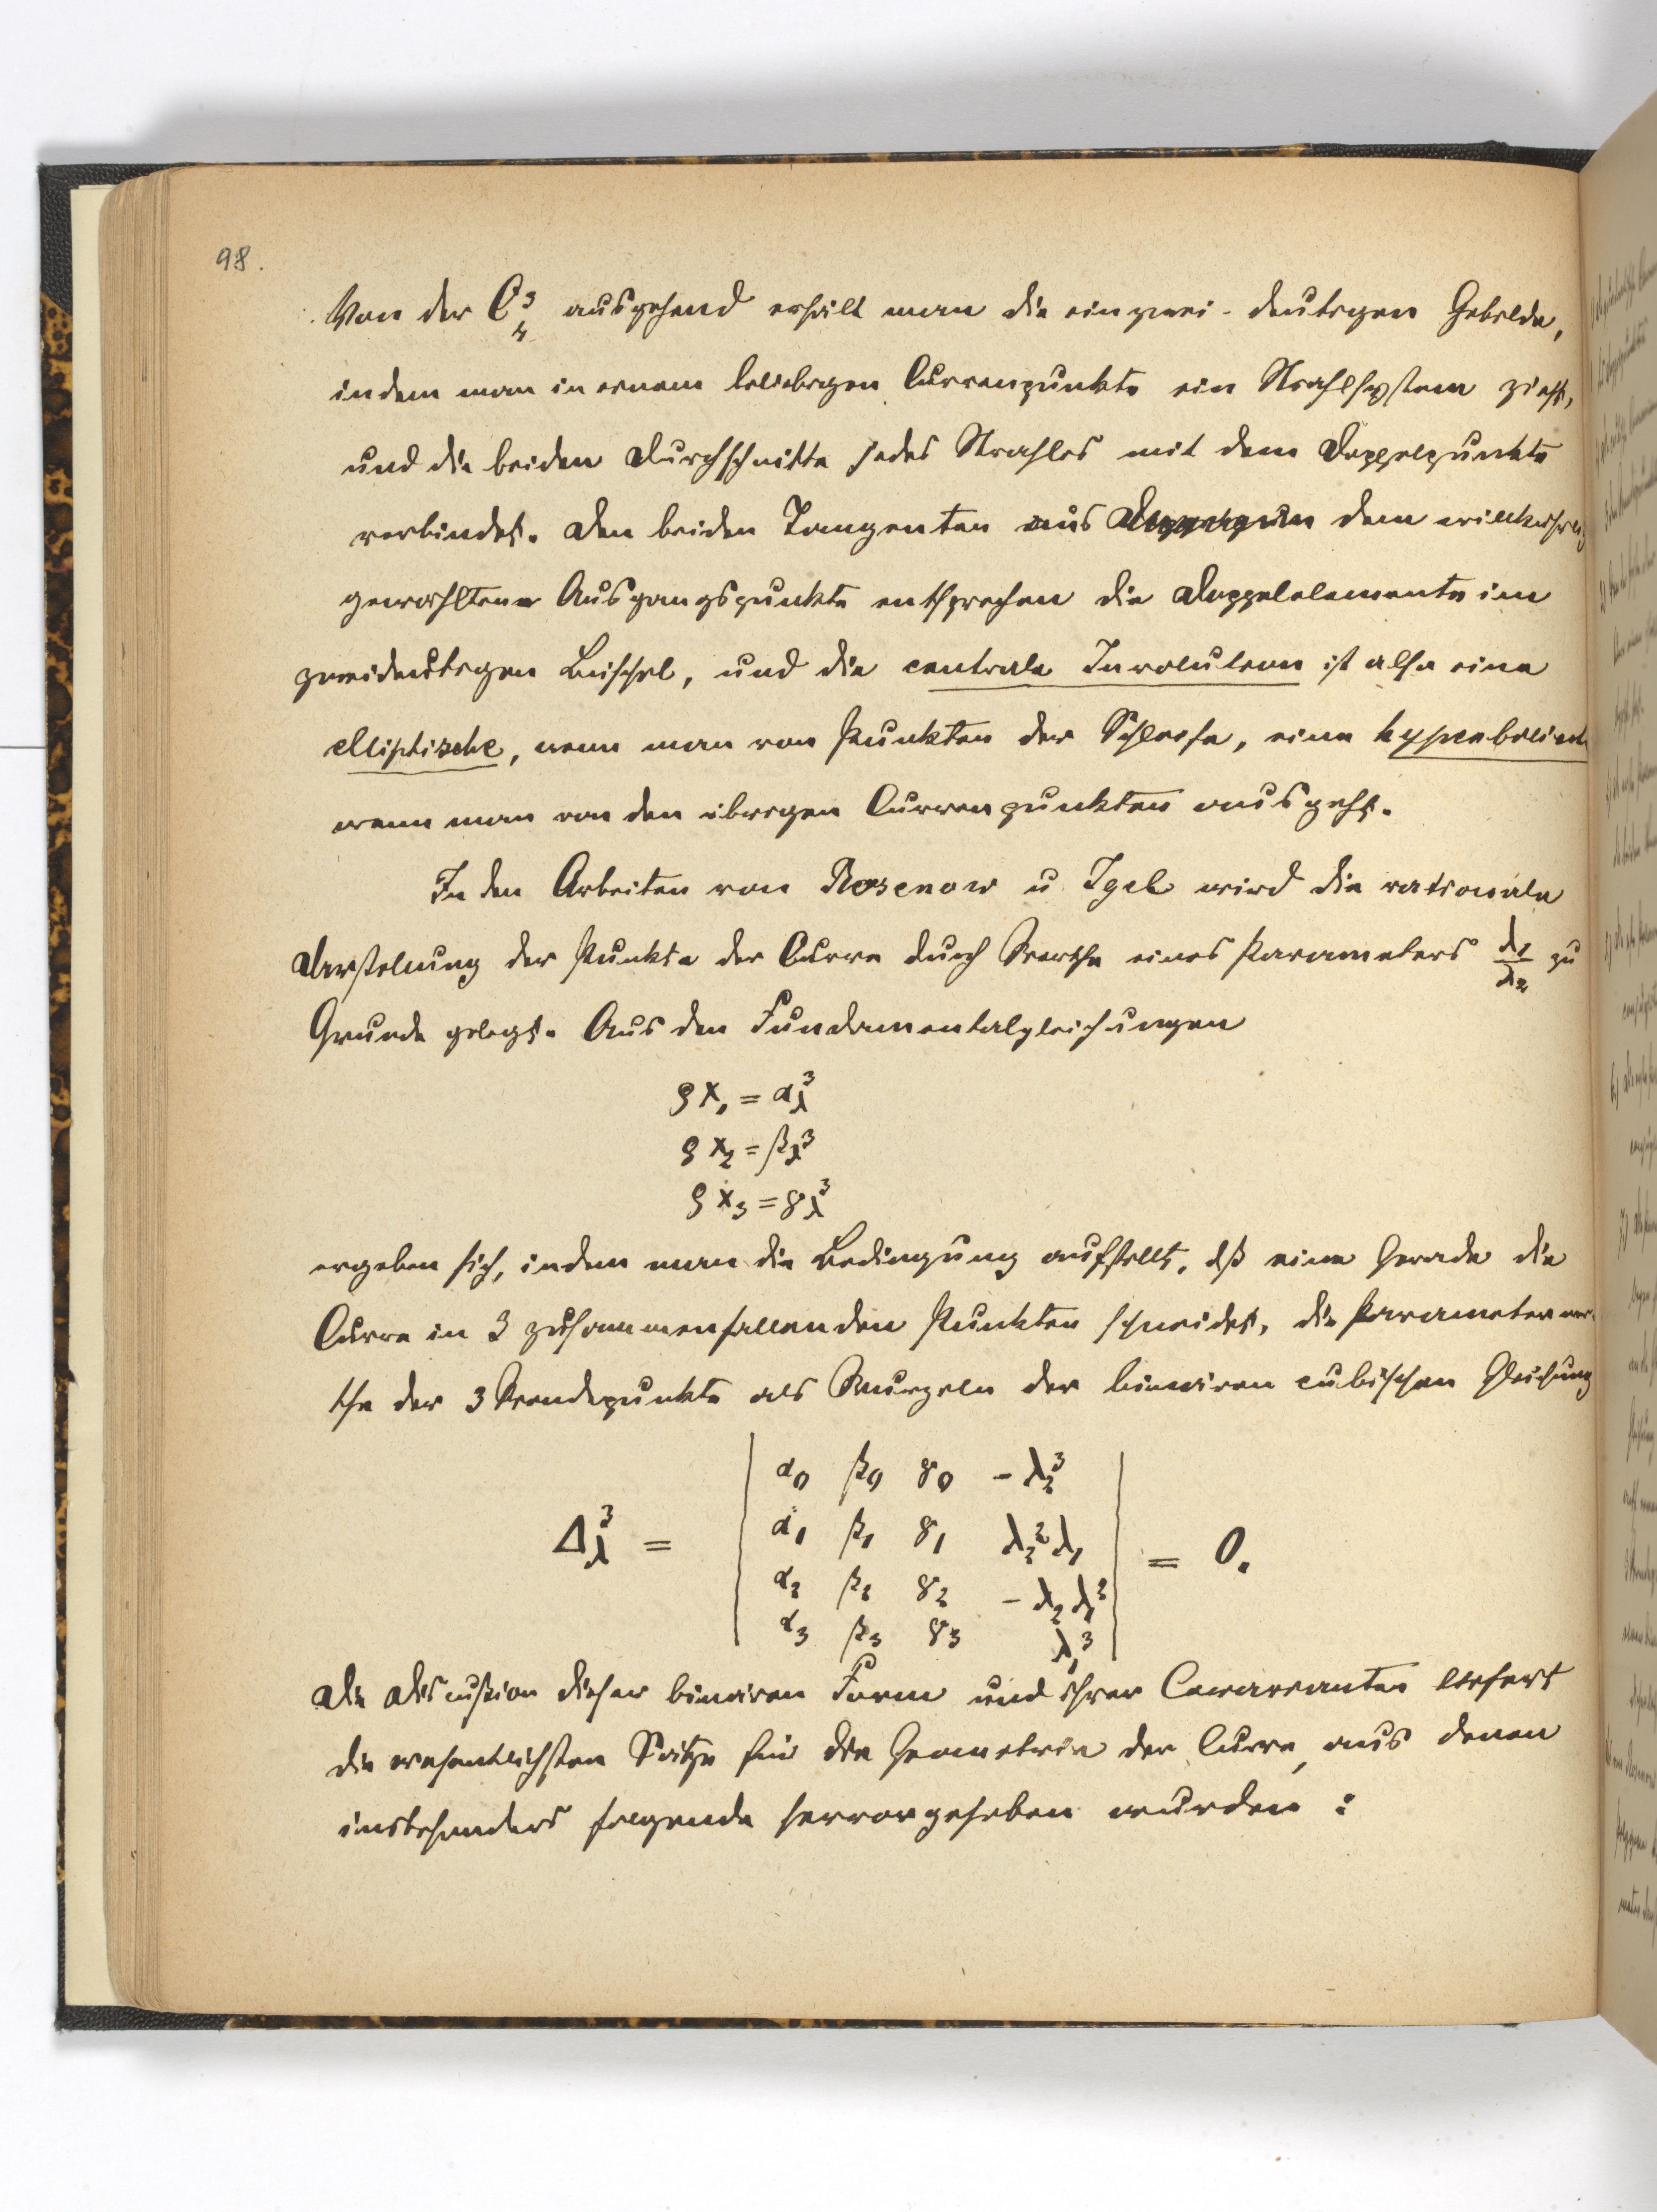 98.
Von der C³₄ ausgehend erhält man die einzwei-deutigen Gebilde,
indem man in einem beliebigen Curvenpunkte ein Strahlsystem zieht,
und die beiden Durchschnitte jedes Strahles mit dem Doppelpunkte
verbindet. Den beiden Tangenten aus dem willkürlich
gewählten Ausgangspunkte entsprechen die Doppelelemente im
zweideutigen Büschel, und die centrale Involution ist also eine
elliptische, wenn man von Punkten der Schleife, eine hyperbolische
wenn man von den übrigen Curvenpunkten ausgeht.
In den Arbeiten von Rosenow u Igel wird die rationale
Darstellung der Punkte der Curve durch Werthe eines Parameters λ₁/λ₂ zu
Grunde gelegt. Aus den Fundamentalgleichungen
ρx₁ = α_λ³
ρx₂ = β_λ³
ρx₃ = γ_λ³
ergeben sich, indem man die Bedingung aufstellt, dß eine Gerade die
Curve in 3 zusammenfallenden Punkten schneidet, die Parameterwer-
the der 3 Wendepunkte als Wurzeln der binären cubischen Gleichung
α₀ β₀ γ₀ -λ₂³
Δ_λ³ = α₁ β₁ γ₁ λ₂²λ₁ = 0.
α₂ β₂ γ₂ -λ₂λ₁²
α₃ β₃ γ₃ λ₁³
Die Discussion dieser binären Form und ihrer Covarianten liefert
die wesentlichsten Sätze für die Geometrie der Curve, aus denen
insbesonders folgende hervorgehoben wurden :